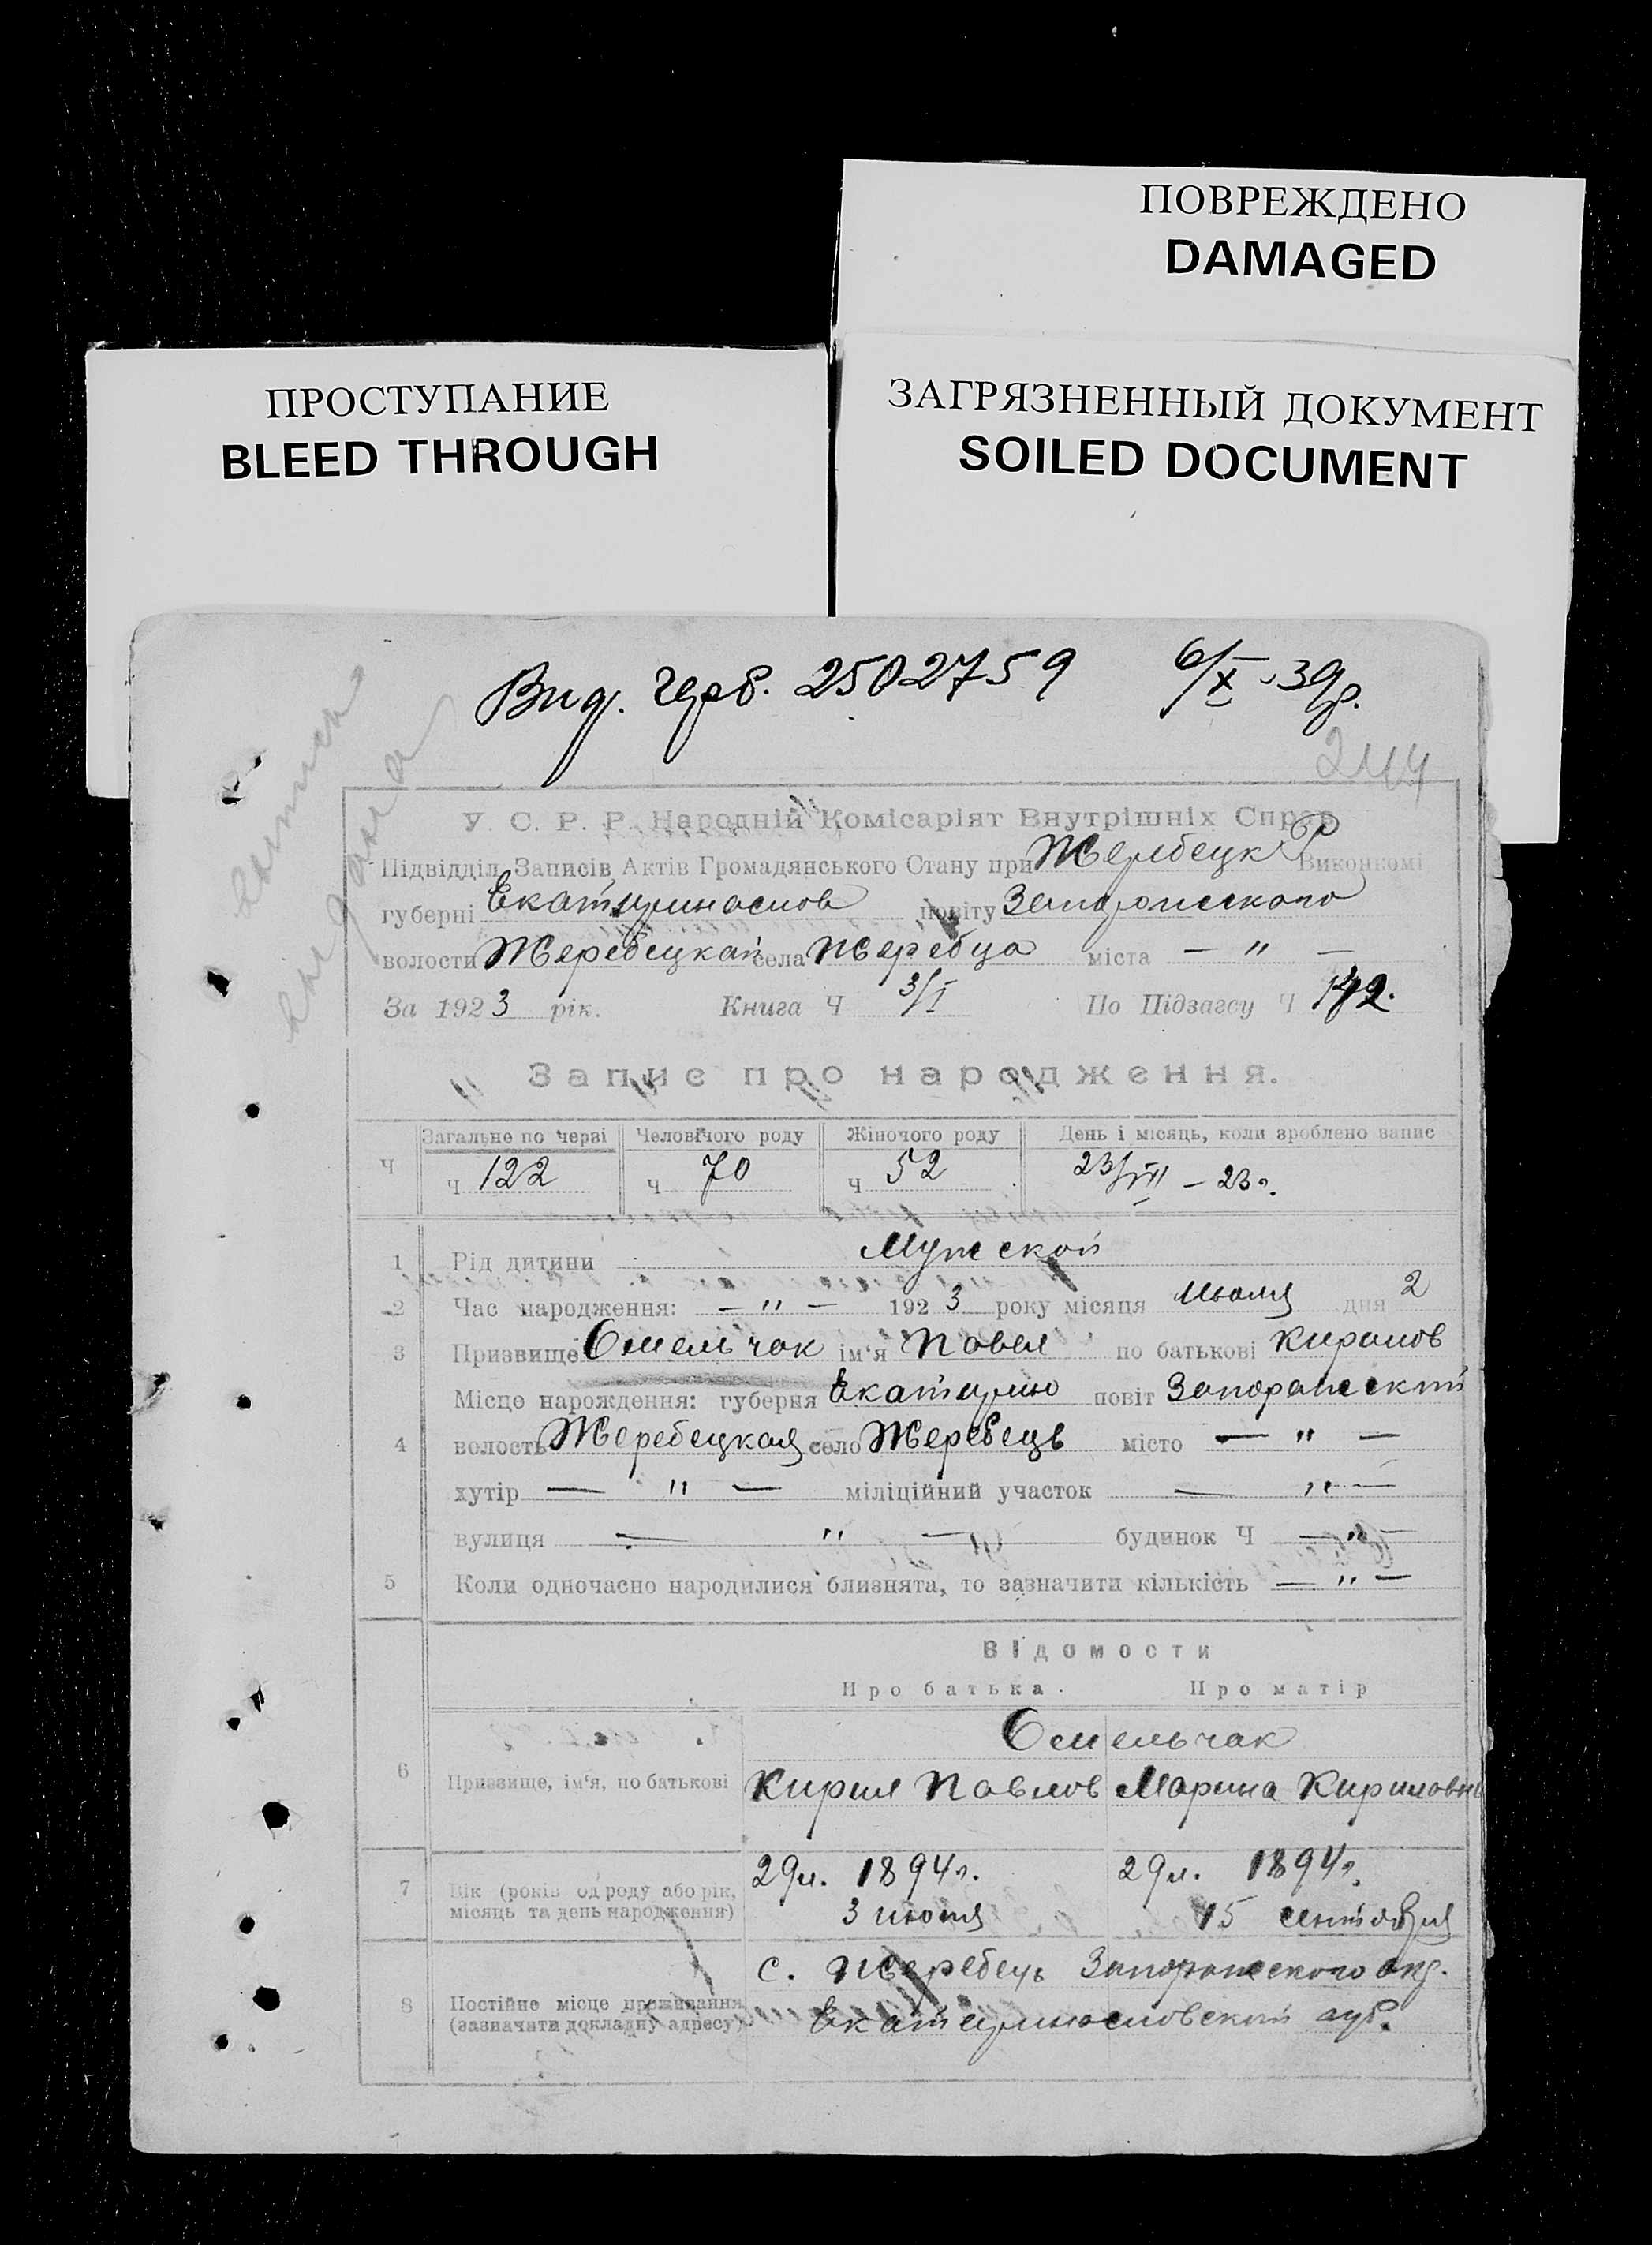 ПОВРЕЖДЕНО
DAMAGED
ПРОСТУПАНИЕ
BLEED THROUGH
ЗАГРЯЗНЕННЫЙ ДОКУМЕНТ
SOILED DOCUMENT
Вид. герб. 2502759 6/X-39р.
244
У. С. Р. Р. Народній Комісаріят Внутрішніх Справ
Підвідділ Записів Актів Громадянського Стану при Жеребецк Р Виконкомі
губерні Екатеринослов повіту Запорожского
волости Жеребецкай села Жеребца міста — " —
За 1923 рік. Книга Ч 3/I По Підзагсу Ч 142.
Запис про народження.
Загальне по черві Человічого роду Жіночого роду День і місяць, коли зроблено запис
Ч Ч 122 Ч 70 Ч 52 23/VII – 23г.
1 Рід дитини Мужской
2 Час народження: — " — 1923 року місяця Июля дня 2
3 Призвище Омельчак ім'я Павел по батькові Кирилов
Місце народження: губерня Екатерино повіт Запорожский
4 волость Жеребецкая село Жеребець місто — " —
хутір — " — міліційний участок — " —
вулиця — " — будинок Ч — " —
5 Коли одночасно народилися близнята, то зазначити кількість — " —
Відомости
Про батька. Про матір
Омельчак
6 Призвище, ім'я, по батькові Кирил Павлов Марина Кириловн
7 Вік (років од роду або рік, 29л. 1894г. 29л. 1894г.
місяць та день народження) 3 июня 15 сентября
с. Жеребець Запорожского окр.
8 Постійне місце проживання
(зазначати докладну адресу) Екатеринословской губ.